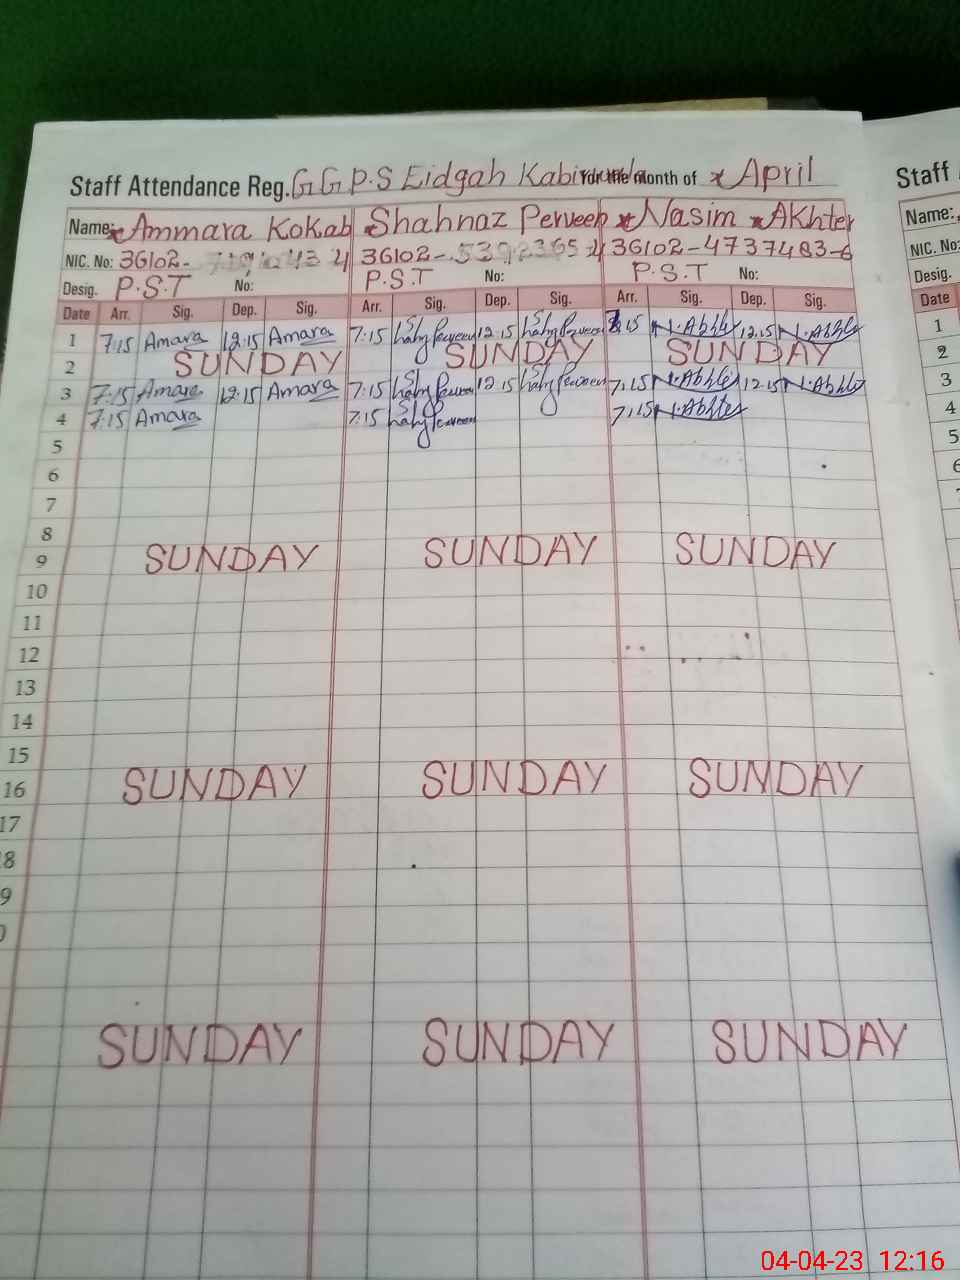 Staff Attendance Reg. G G P.S Eidgah Kabirwala for the month of April
Staff
Name: Ammara Kokab Shahnaz Perveen Nasim Akhter
Name:
NIC. No: 36102- 36102- 36102-4737483-6
NIC. No:
Desig. P.S.T No: P.S.T No: P.S.T No:
Desig.
Date Arr. Sig. Dep. Sig. Arr. Sig. Dep. Sig. Arr. Sig. Dep. Sig.
Date
1 7:15 Amara 12:15 Amara 7:15 Perveen 12:15 Perveen 7:15 N.Akhter 12:15 N.Akhter
1
2 SUNDAY SUNDAY SUNDAY
2
3 7:15 Amara 12:15 Amara 7:15 Perveen 12:15 Perveen 7:15 N.Akhter 12:15 N.Akhter
3
4 7:15 Amara 7:15 Perveen 7:15 N.Akhter
4
5
5
6
6
7
8
9 SUNDAY SUNDAY SUNDAY
10
11
12
13
14
15
16 SUNDAY SUNDAY SUNDAY
17
8
9
SUNDAY SUNDAY SUNDAY
04-04-23 12:16